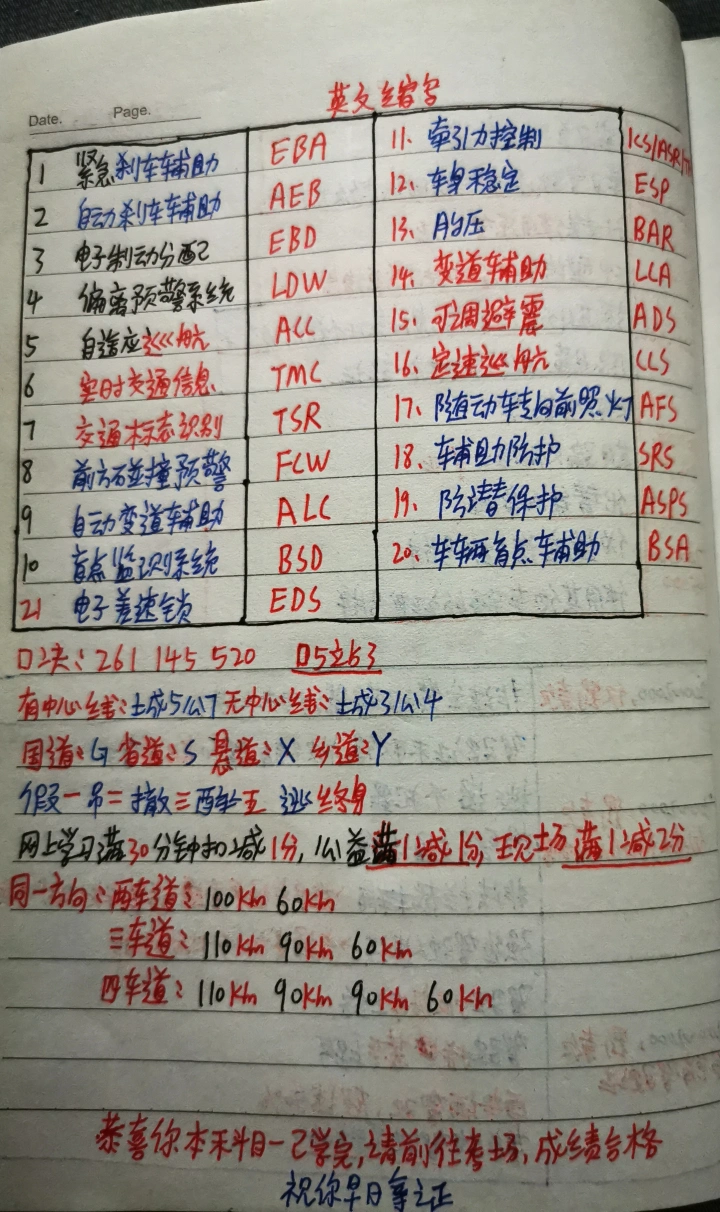 英文缩写
Date. Page.
1 紧急刹车辅助 EBA 11、牵引力控制
2 自动刹车辅助 AEB 12、车身稳定 ESP
3 电子制动分配 EBD 13、胎压 BAR
4 偏离预警系统 LDW 14、变道辅助 LCA
5 自适应巡航 ACC 15、可调避震 ADS
6 实时交通信息 TMC 16、定速巡航 CCS
7 交通标志识别 TSR 17、随动车专向前照灯 AFS
8 前方碰撞预警 FCW 18、车辅助防护 SRS
9 自动变道车辅助 ALC 19、防潜保护 ASPS
10 盲点监识别系统 BSD 20、车车两盲点车辅助 BSA
21 电子差速锁 EDS
口决:261 145 520
有中心线:城5公7 无中心线:城3公4
国道:G 省道:S 县道:X 乡道:Y
假一吊二撤三醉五 逃终身
网上学习满30分钟扣减1分,公益满1减1分,现场满1减2分
同一方向:两车道:100Km 60Km
三车道:110Km 90Km 60Km
四车道:110Km 90Km 90Km 60Km
恭喜你本科目一已学完,请前往考场,成绩合格
祝你早日拿证